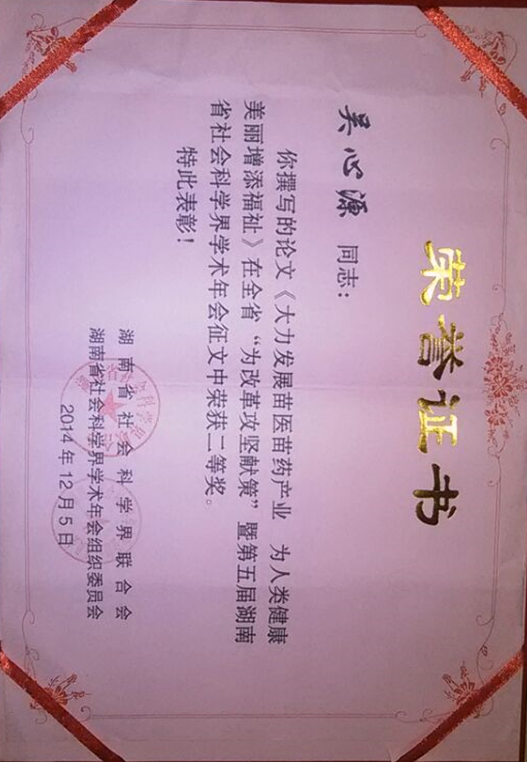 荣誉证书
吴心源 同志：
你撰写的论文《大力发展苗医苗药产业 为人类健康
美丽增添福祉》在全省“为改革攻坚献策”暨第五届湖南
省社会科学界学术年会征文中荣获二等奖。
特此表彰！
湖南省社会科学界联合会
湖南省社会科学界学术年会组织委员会
2014年12月5日